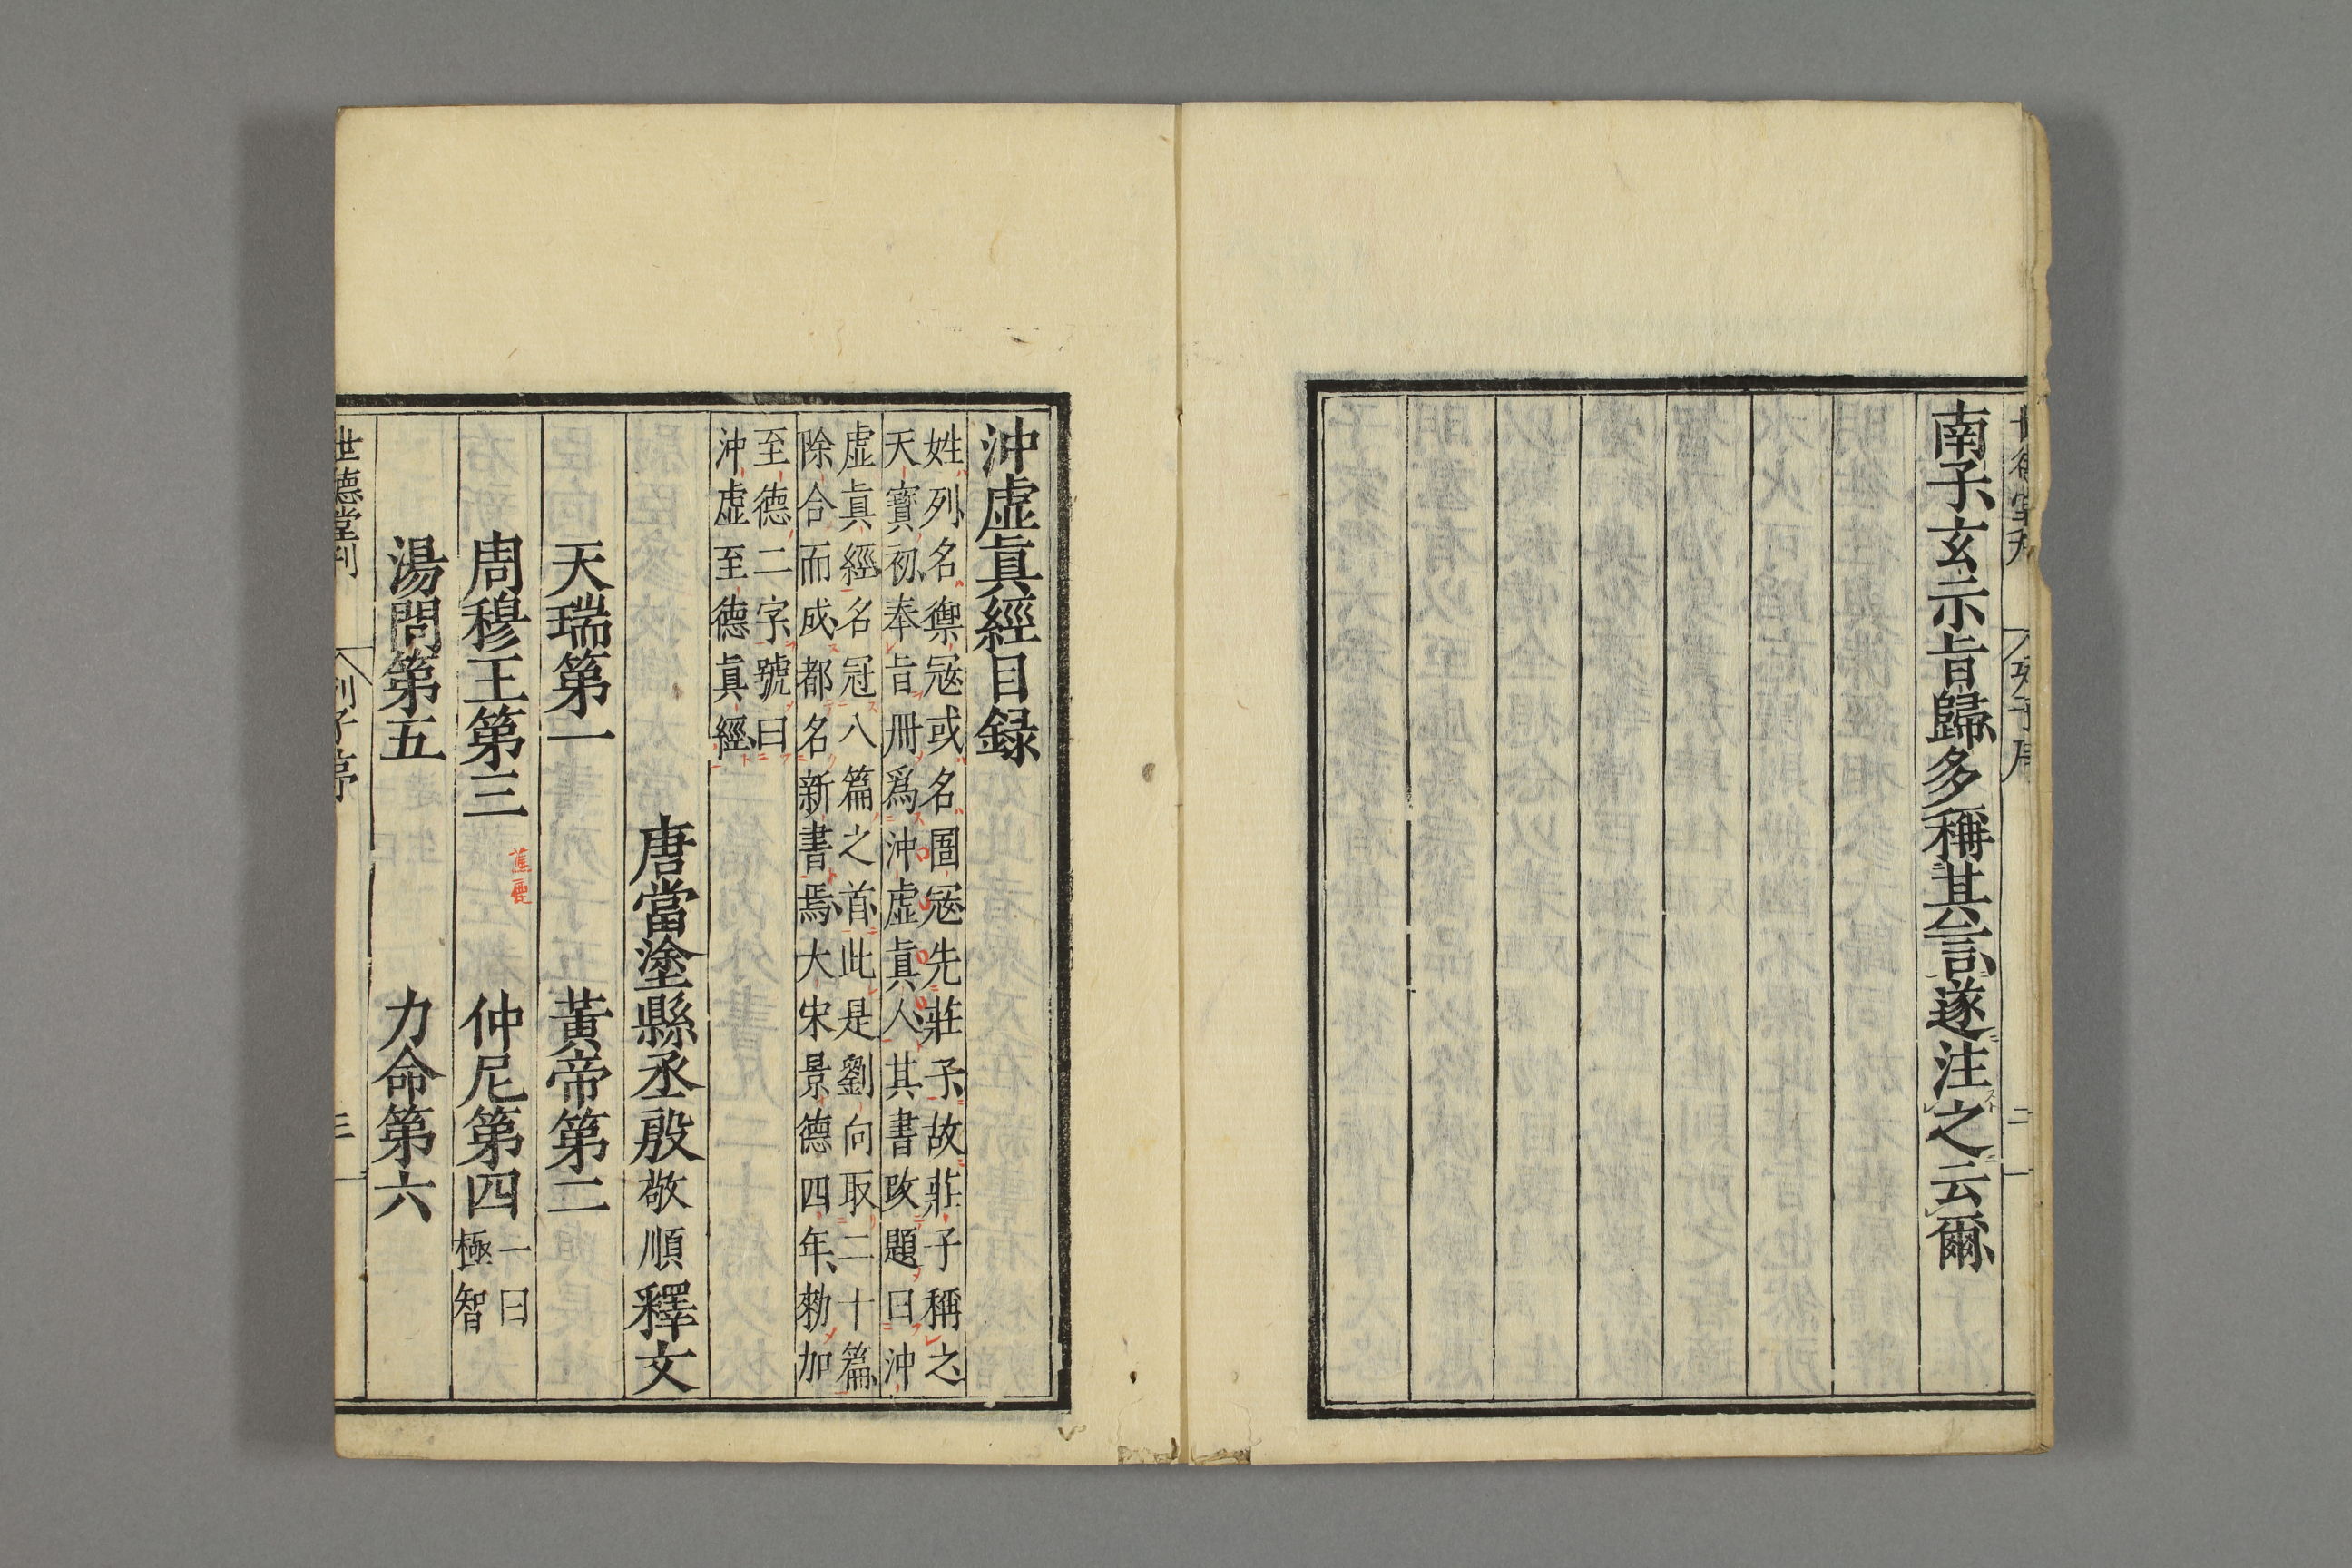 世德堂刊 列子序 二
南子玄示旨歸多稱其言遂注之云爾
沖虛眞經目録
姓列名禦寇或名圄寇先莊子故莊子稱之
天寶初奉旨冊爲沖虛眞人其書改題曰沖
虛眞經名冠八篇之首此是劉向取二十篇
除合而成都名新書焉大宋景德四年勑加
至德二字號曰
沖虛至德眞經
唐當塗縣丞殷敬順釋文
天瑞第一 黃帝第二
周穆王第三 蕉鹿 仲尼第四 一曰
極智
湯問第五 力命第六
世德堂刊 列子序 三